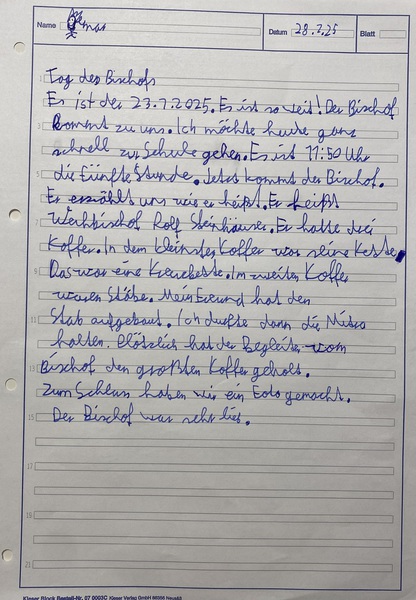 Name Thomas Datum 28.7.25 Blatt
Tag des Bischofs
Es ist der 23.7.2025. Es ist so weit! Der Bischof
kommt zu uns. Ich möchte heute ganz
schnell zur Schule gehen. Es ist 11:50 Uhr
die fünfte Stunde. Jetzt kommt der Bischof.
Er erzählt uns wie er heißt. Er heißt
Weihbischof Rolf Steinhäuser. Er hatte drei
Koffer. In dem kleinsten Koffer war seine Kette.
Das war eine Kreuzkette. Im zweiten Koffer
waren Stäbe. Mein Freund hat den
Stab aufgebaut. Ich durfte dann die Mitra
halten. Plötzlich hat der Begleiter vom
Bischof den großten Koffer geholt.
Zum Schluss haben wir ein Foto gemacht.
Der Bischof war sehr lieb.
Kieser Block Bestell-Nr. 07 0003C Kieser Verlag GmbH 86356 Neusäß